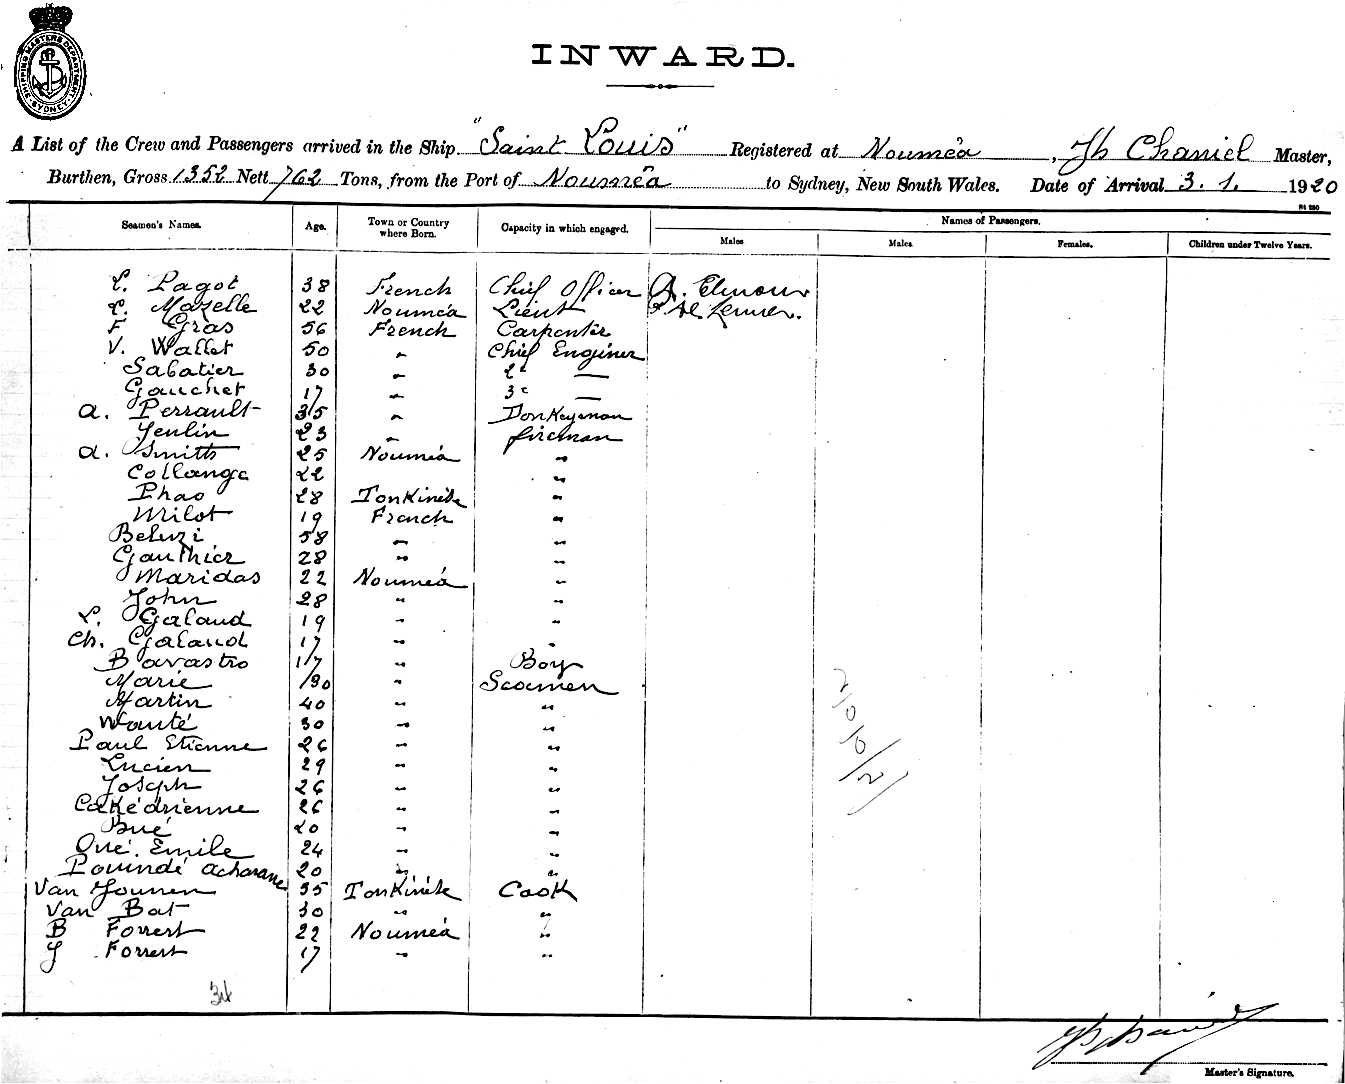 SHIPPING MASTERS DEPARTMENT SYDNEY
INWARD.
A List of the Crew and Passengers arrived in the Ship "Saint Louis" Registered at Nouméa, Jh Chaniel Master,
Burthen, Gross 1352 Nett 762 Tons, from the Port of Nouméa to Sydney, New South Wales. Date of Arrival 3.1. 1920
Seamen's Names. Age. Town or Country where Born. Capacity in which engaged. Names of Passengers.
Males Males Females. Children under Twelve Years.
L. Pagot 38 French Chief Officer A.
L. Mazelle 22 Nouméa Lieut
F Gras 56 French Carpenter
V. Wallet 50 " Chief Enginer
Sabatier 30 " 2e —
Gauchet 17 " 3e —
A. Perrault 35 " Donkeyman
Yenlin 23 " fireman
A. Smith 25 Nouméa "
Collange 22 "
Phao 28 Tonkinese "
Milot 19 French "
Beluzi 58 " "
Gauthier 28 " "
Maridas 22 Nouméa "
John 28 " "
L. Galaud 19 " "
Ch. Galaud 17 " "
Bavastro 17 " Boy
Marie 30 " Seamen
Martin 40 " "
Wanté 30 " "
Paul Etienne 26 " "
Lucien 29 " "
Joseph 26 " "
Cakédrienne 26 " "
Bué 20 " "
Oué. Emile 24 " "
Pouindé Acharane 20 " "
Van Younen 35 Tonkinese Cook
Van Bat 30 " "
B Forrest 22 Nouméa "
J Forrest 17 " "
34
2/0/0/2/
Master's Signature.